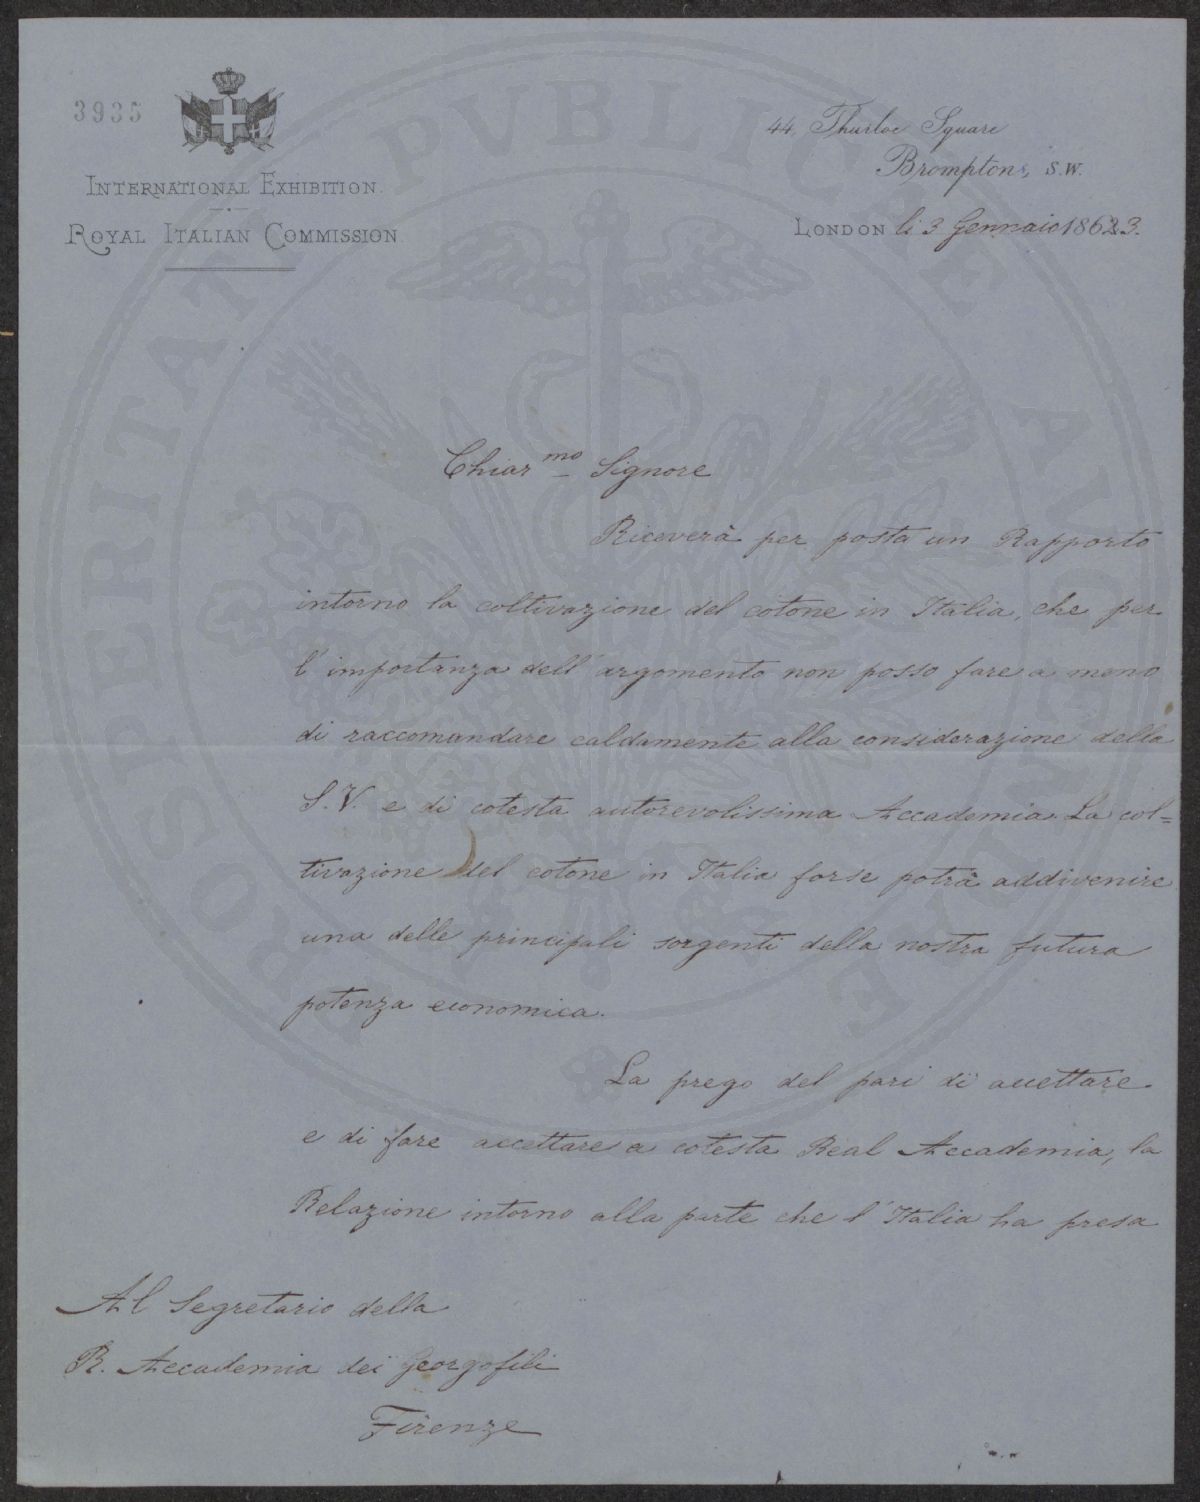 3935
INTERNATIONAL EXHIBITION.
ROYAL ITALIAN COMMISSION
44, Thurloe Square
Brompton, S.W.
LONDON li 3 Gennaio 18623.
PROSPERITATI PVBLICAE AVGENDAE
Chiar mo Signore
Riceverà per posta un Rapporto
intorno la coltivazione del cotone in Italia, che per
l'importanza dell'argomento non posso fare a meno
di raccomandare caldamente alla considerazione della
S.V. e di cotesta autorevolissima Accademia. La col=
tivazione del cotone in Italia forse potrà addivenire
una delle principali sorgenti della nostra futura
potenza economica.
La prego del pari di accettare
e di fare accettare a cotesta Real Accademia, la
Relazione intorno alla parte che l'Italia ha presa
Al Segretario della
R. Accademia dei Georgofili
Firenze